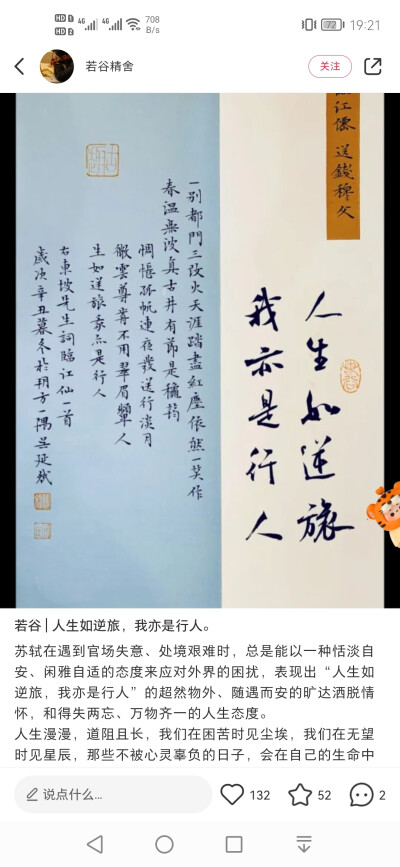 708
B/s
72
19:21
若谷精舍
关注
江僊 送錢穆父
人生如逆旅
我亦是行人
一别都門三改火天涯踏盡紅塵依然一笑作
春温無波真古井有節是穐筠
惆悵孤帆連夜發送行淡月
微雲尊前不用翠眉顰人
生如逆旅我亦是行人
右東坡先生詞臨江仙一首
歲次辛丑暮冬於朔方一隅吴延
若谷 | 人生如逆旅，我亦是行人。
苏轼在遇到官场失意、处境艰难时，总是能以一种恬淡自
安、闲雅自适的态度来应对外界的困扰，表现出“人生如
逆旅，我亦是行人”的超然物外、随遇而安的旷达洒脱情
怀，和得失两忘、万物齐一的人生态度。
人生漫漫，道阻且长，我们在困苦时见尘埃，我们在无望
时见星辰，那些不被心灵辜负的日子，会在自己的生命中
说点什么...
132
52
2